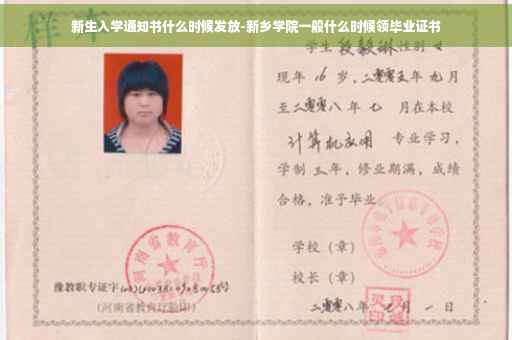 新生入学通知书什么时候发放-新乡学院一般什么时候领毕业证书
样本
学生 段毅琳 性别 女
现年 16 岁,二零零五年 九月
至二零零八年 七 月在本校
计算机应用 专业学习,
学制 三 年, 修业期满, 成绩
合格, 准予毕业
学校(章)
校长(章)
河南省教育厅
豫教职专证字
(河南省教育厅验印)
二零零八年 七 月 一 日